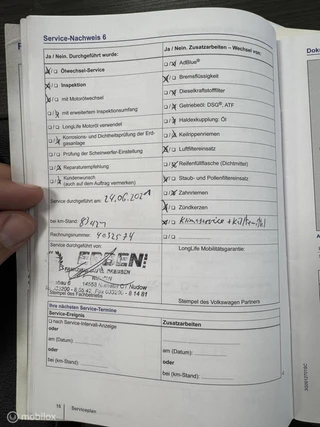 Service-Nachweis 6
Ja / Nein. Durchgeführt wurde:
Ölwechsel-Service
Inspektion
mit Motorölwechsel
mit erweitertem Inspektionsumfang
LongLife Motoröl verwendet
Korrosions- und Dichtheitsprüfung der Erd-
gasanlage
Prüfung der Scheinwerfer-Einstellung
Reparaturempfehlung
Kundenwunsch
(auch auf dem Auftrag vermerken)
Service durchgeführt am: 24.06.2021
bei km-Stand:
Rechnungsnummer: 4032574
Service durchgeführt von:
Stempel des Fachbetriebs
Ja / Nein. Zusatzarbeiten – Wechsel von:
AdBlue®
Bremsflüssigkeit
Dieselkraftstofffilter
Getriebeöl: DSG®, ATF
Haldexkupplung: Öl
Keilrippenriemen
Luftfiltereinsatz
Reifenfüllflasche (Dichtmittel)
Staub- und Pollenfiltereinsatz
Zahnriemen
Zündkerzen
Klimaservice
LongLife Mobilitätsgarantie:
Stempel des Volkswagen Partners
Ihre nächsten Service-Termine
Service-Ereignis
nach Service-Intervall-Anzeige
oder
am (Datum):
oder
bei (km-Stand):
Zusatzarbeiten
am (Datum):
oder
bei (km-Stand):
16 Serviceplan
Doku
mobilox